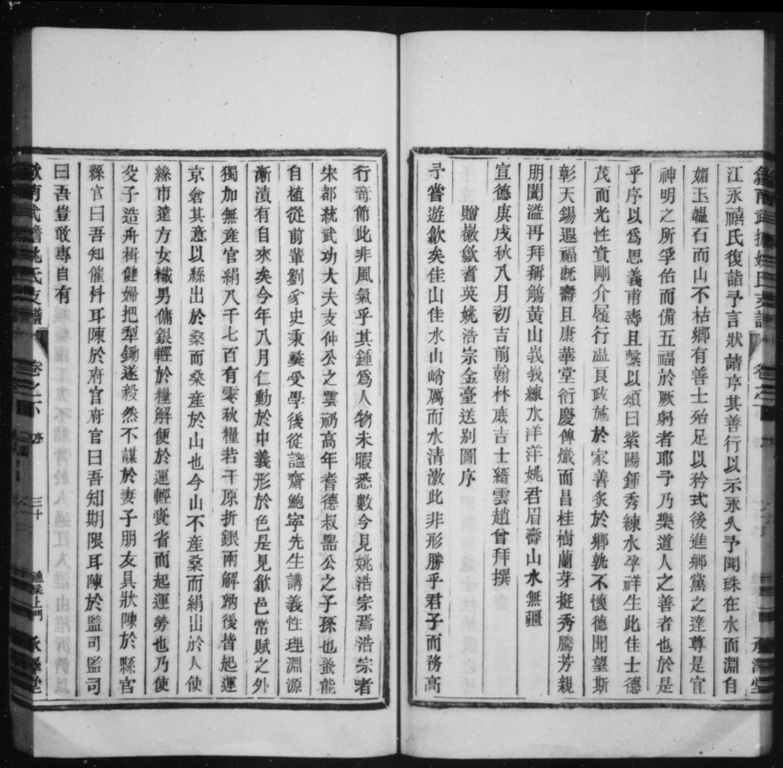 江永禧氏復詣予言狀請序其善行以示永久予聞珠在水而淵自
媚玉韞石而山不枯鄉有善士殆足以矜式後進鄉黨之達尊是宜
神明之所孚佑而備五福於厥躬者耶予乃樂道人之善者也於是
乎序以爲思義甫壽且繫以頌曰紫陽鍾秀練水孕祥生此佳士德
茂而光性資剛介履行溫良政施於家善炙於鄉孰不懷德聞望斯
彰天錫遐福旣壽且康華堂衍慶傳熾而昌桂樹蘭芽挺秀騰芳親
朋閭溢再拜稱觴黃山峩峩練水洋洋姚君眉壽山水無疆
宣德庚戌秋八月初吉前翰林庶吉士縉雲趙曾拜撰
贈徽歙耆英姚浩宗金臺送别圖序
予嘗遊歙矣佳山佳水山峭厲而水清激此非形勝乎君子而務高
行奇節此非風氣乎其鍾爲人物未暇悉數今見姚浩宗焉浩宗者
宋都統武功大夫支仲公之雲礽高年耆德叔器公之子孫也蚤能
自植從前輩劉彥史秉彝受學後從謐齋鮑寧先生講義性理淵源
漸漬有自來矣今年八月仁動於中義形於色是見歙邑常賦之外
獨加無產官絹八千七百有零秋糧若干原折銀兩解納後皆起運
京倉其意以縣出於桑而桑產於山也今山不產桑而絹出於人使
絲市遠方女織男傭銀輕於糧解便於運輕賫省而起運勞也乃使
殳子造舟楫健婦把犁鋤遂毅然不謀於妻子朋友具狀陳於縣官
縣官曰吾知催科耳陳於府官府官曰吾知期限耳陳於監司監司
曰吾豈敢專自有
歙南武擔姚氏支譜 卷之下 序 三十 承澤堂